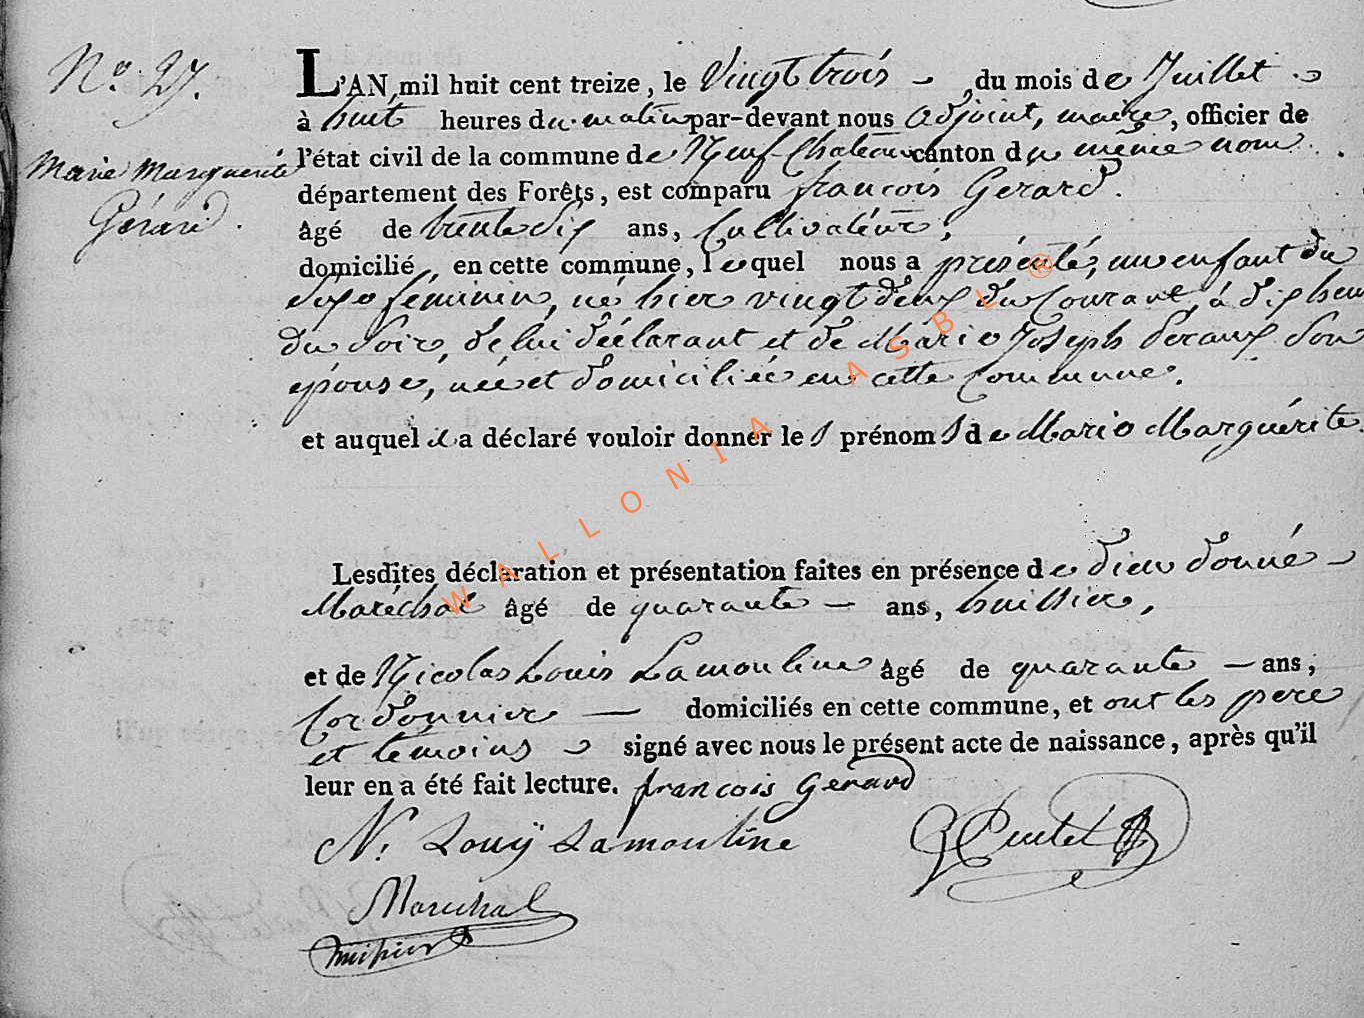 N.º 27.
Marie Marguerite
Gérard.
L'AN mil huit cent treize, le Vingt trois du mois de Juillet
à huit heures du matin par-devant nous adjoint, maire, officier de
l'état civil de la commune de Neuf-Chateau canton du même nom
département des Forêts, est comparu françois Gerard.
âgé de trente dix ans, Cultivateur,
domicilié en cette commune, lequel nous a présenté, un enfant du
Sexe féminin, né hier vingt deux du Courant, à dix heur
du Soir, de lui déclarant et de Marie Joseph Son
épouse, née et domiciliée en cette Commune.
et auquel il a déclaré vouloir donner les prénoms de Marie Marguérite.
Lesdites déclaration et présentation faites en présence de dieu donné
Maréchal âgé de quarante ans, huissier,
et de Nicolas Louis Lamouline âgé de quarante ans,
Cordonnier domiciliés en cette commune, et ont les pere
et témoins signé avec nous le présent acte de naissance, après qu'il
leur en a été fait lecture. françois Gerard
N. Louÿ Lamouline
Marechal
WALLONIA ASBL ®